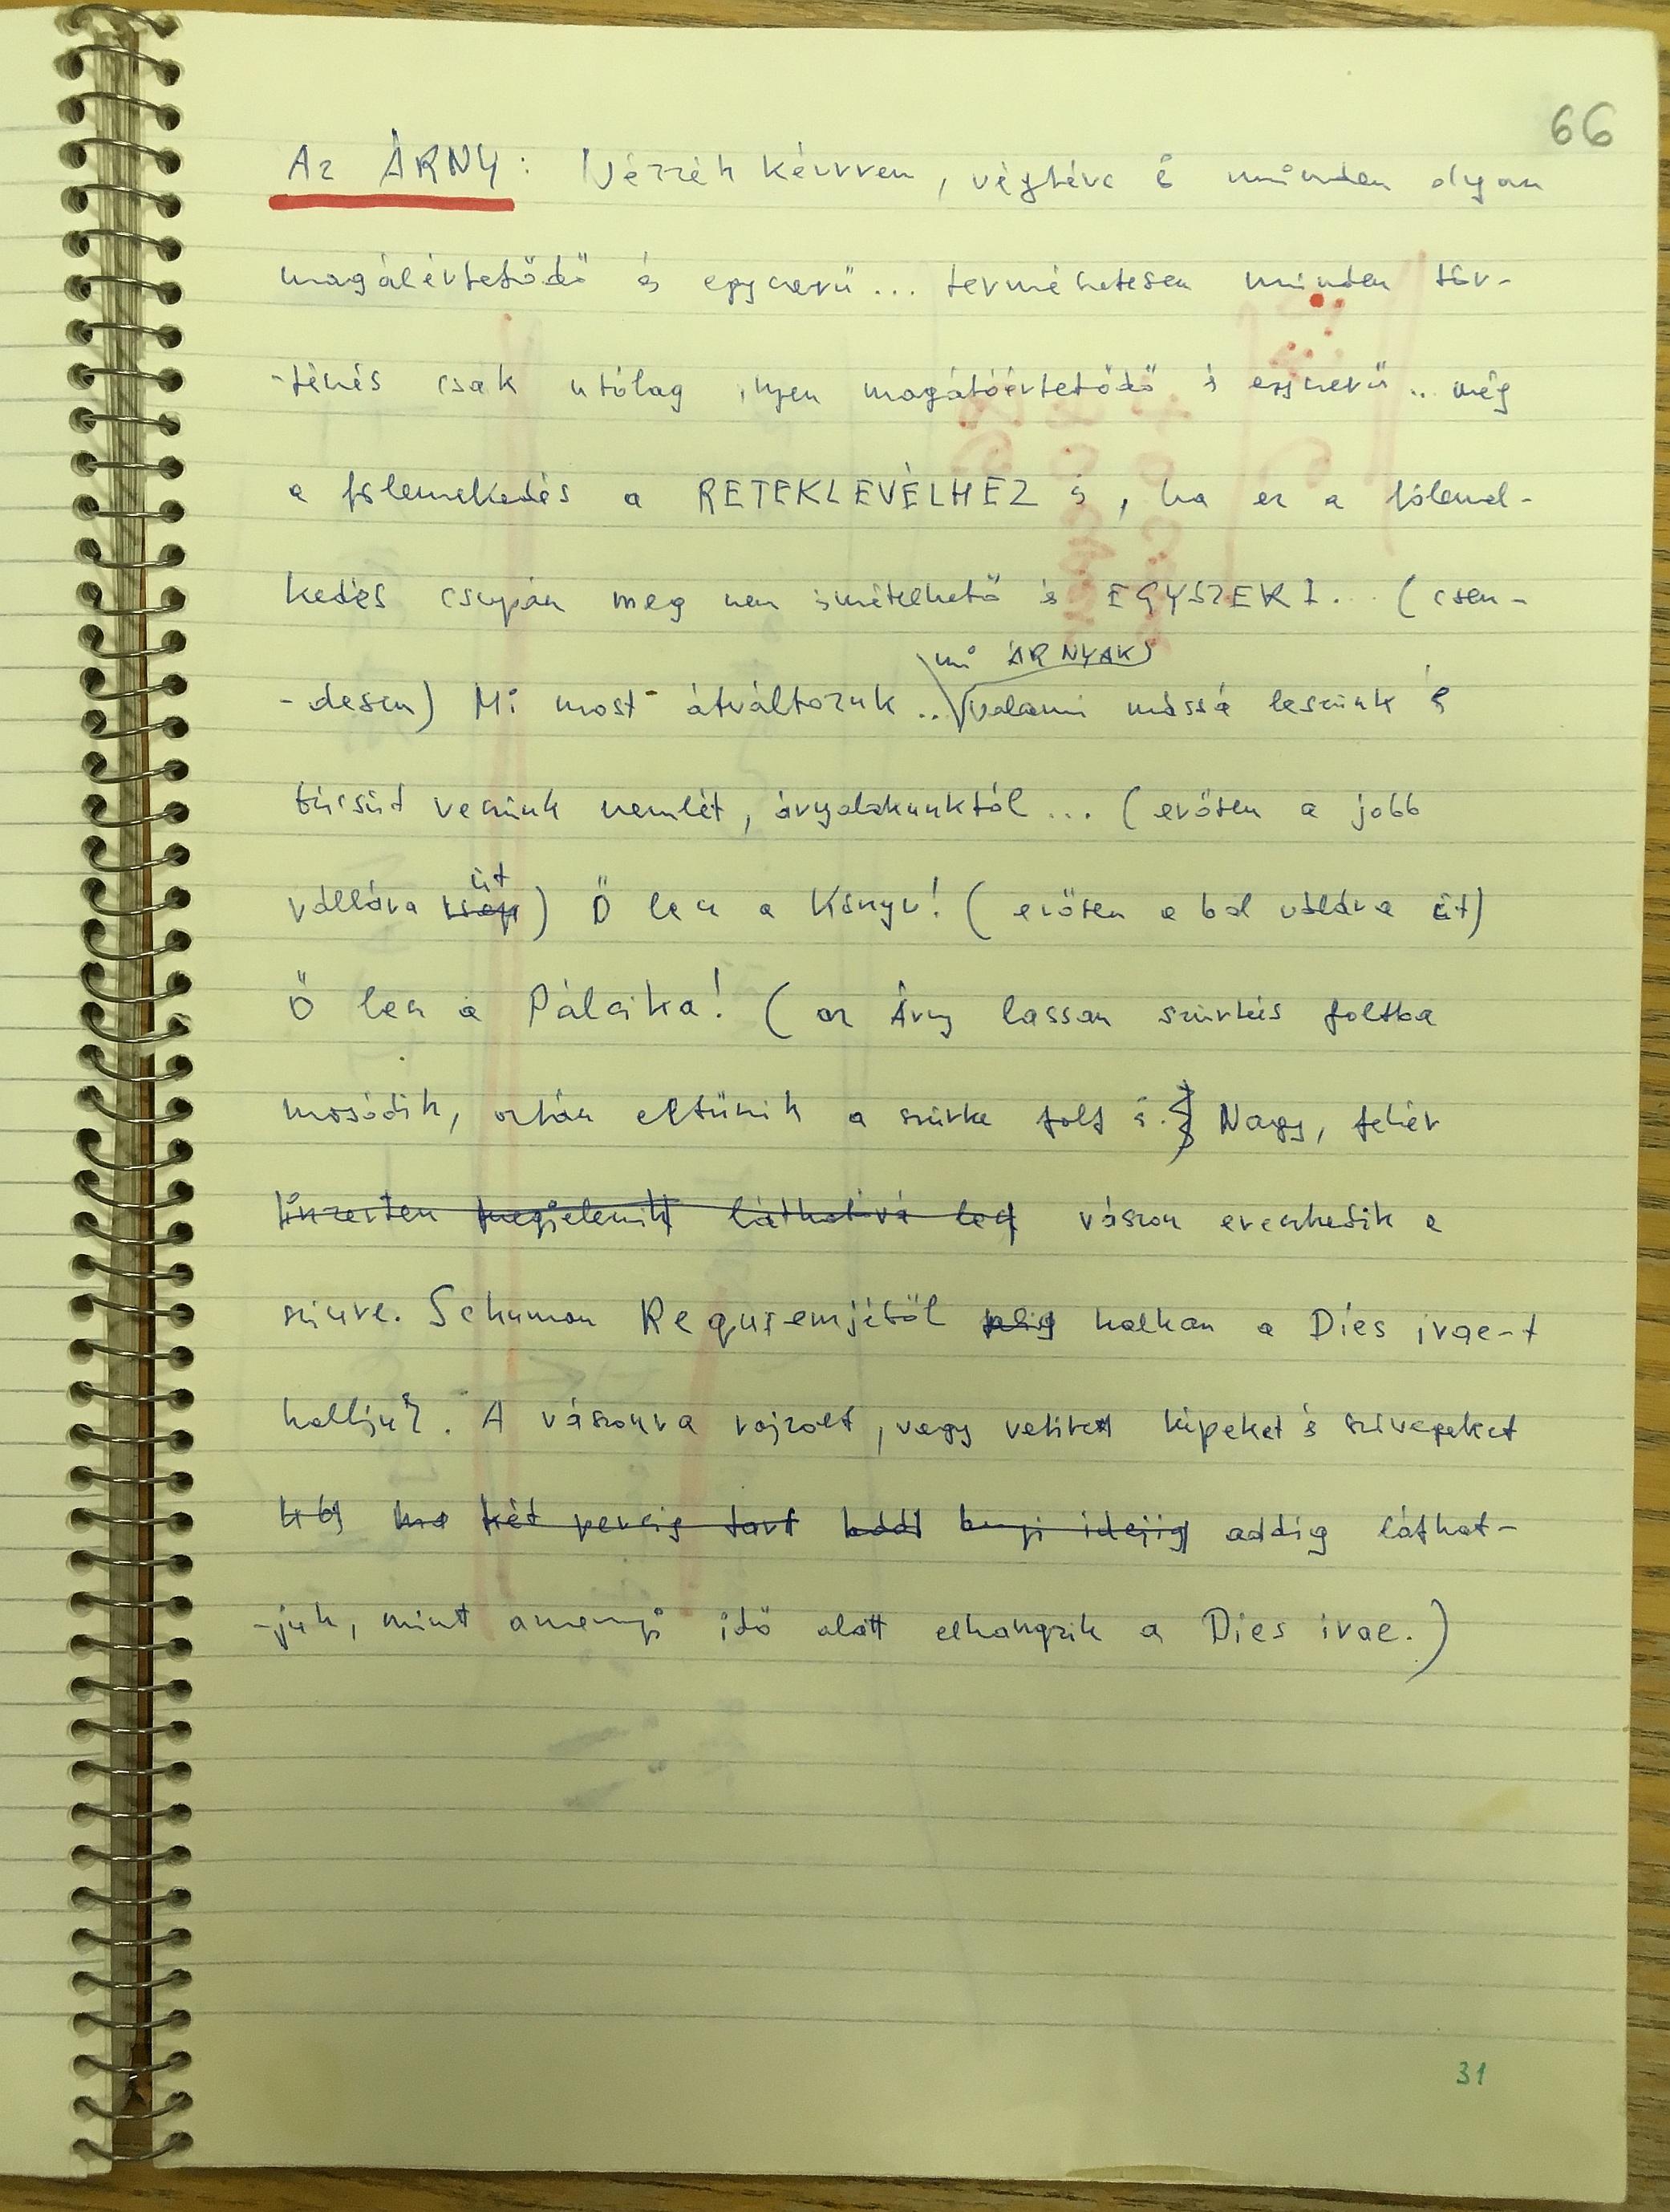 66
Az ÁRNY: Nézzék kérrem, végtére is minden olyan
magálértetődő és egyszerű... természetesen minden tör-
-ténés csak utólag ilyen magátóértetődő és egyszerű .. még
a fölemelkedés a RETEKLEVÉLHEZ is, ha ez a fölemel-
kedés csupán meg nem ismételhető és EGYSZERI... (csen-
mi ÁRNYAK
-desen) Mi most átváltozunk .. valami mássá leszünk és
búcsút veszünk nemlét, árnyalakunktól ... (erősen a jobb
üt
vállára csap) Ő lesz a Könyv! (erősen a bal vállára üt)
Ő lesz a Pálcika! (az Árny lassan szürkés foltba
mosódik, aztán eltűnik a szürke folt is. Nagy, fehér
megjelenik láthatóvá lesz vászon ereszkedik a
színre. Schuman Requiemjétöl halkan a Dies irae-t
halljuk. A vászonra rajzolt, vagy vetített képeket és szövegeket
két percig tart idejig addig láthat-
-juk, mint amennyi idő alatt elhangzik a Dies irae.)
31